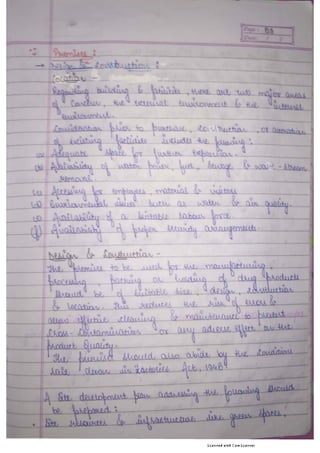 Page: 33
Date: / /
Premises :
→ Design & Construction :
Location →
Regarding building & facilities, there are two major areas
of concern, the external environment & the internal
environment.
Consideration prior to purchase, construction, or
of existing facilities includes the following :
(a) Adequate space for further expansion.
(b) Availability of water, power, fuel, sewage & waste - stream
removal.
(c) Accessing for employees, material & visitors
(d) Environmental issues such as water & air quality.
(e) Availability of a suitable labour force.
(f) Availability of proper security arrangements.
Design & Construction -
The premises to be used for the manufacturing,
processing, packing or holding of drug products
should be of suitable size, design, construction
& location. This reduces the risk of errors &
allows effective cleaning & maintenance to prevent
cross-contamination or any adverse effect on the
product quality.
The premises should also abide by the conditions
laid down in Factories Act, 1948
A Site development plan addressing the following should
be prepared :
• Site resources & infrastructure like green spaces,
Scanned with CamScanner